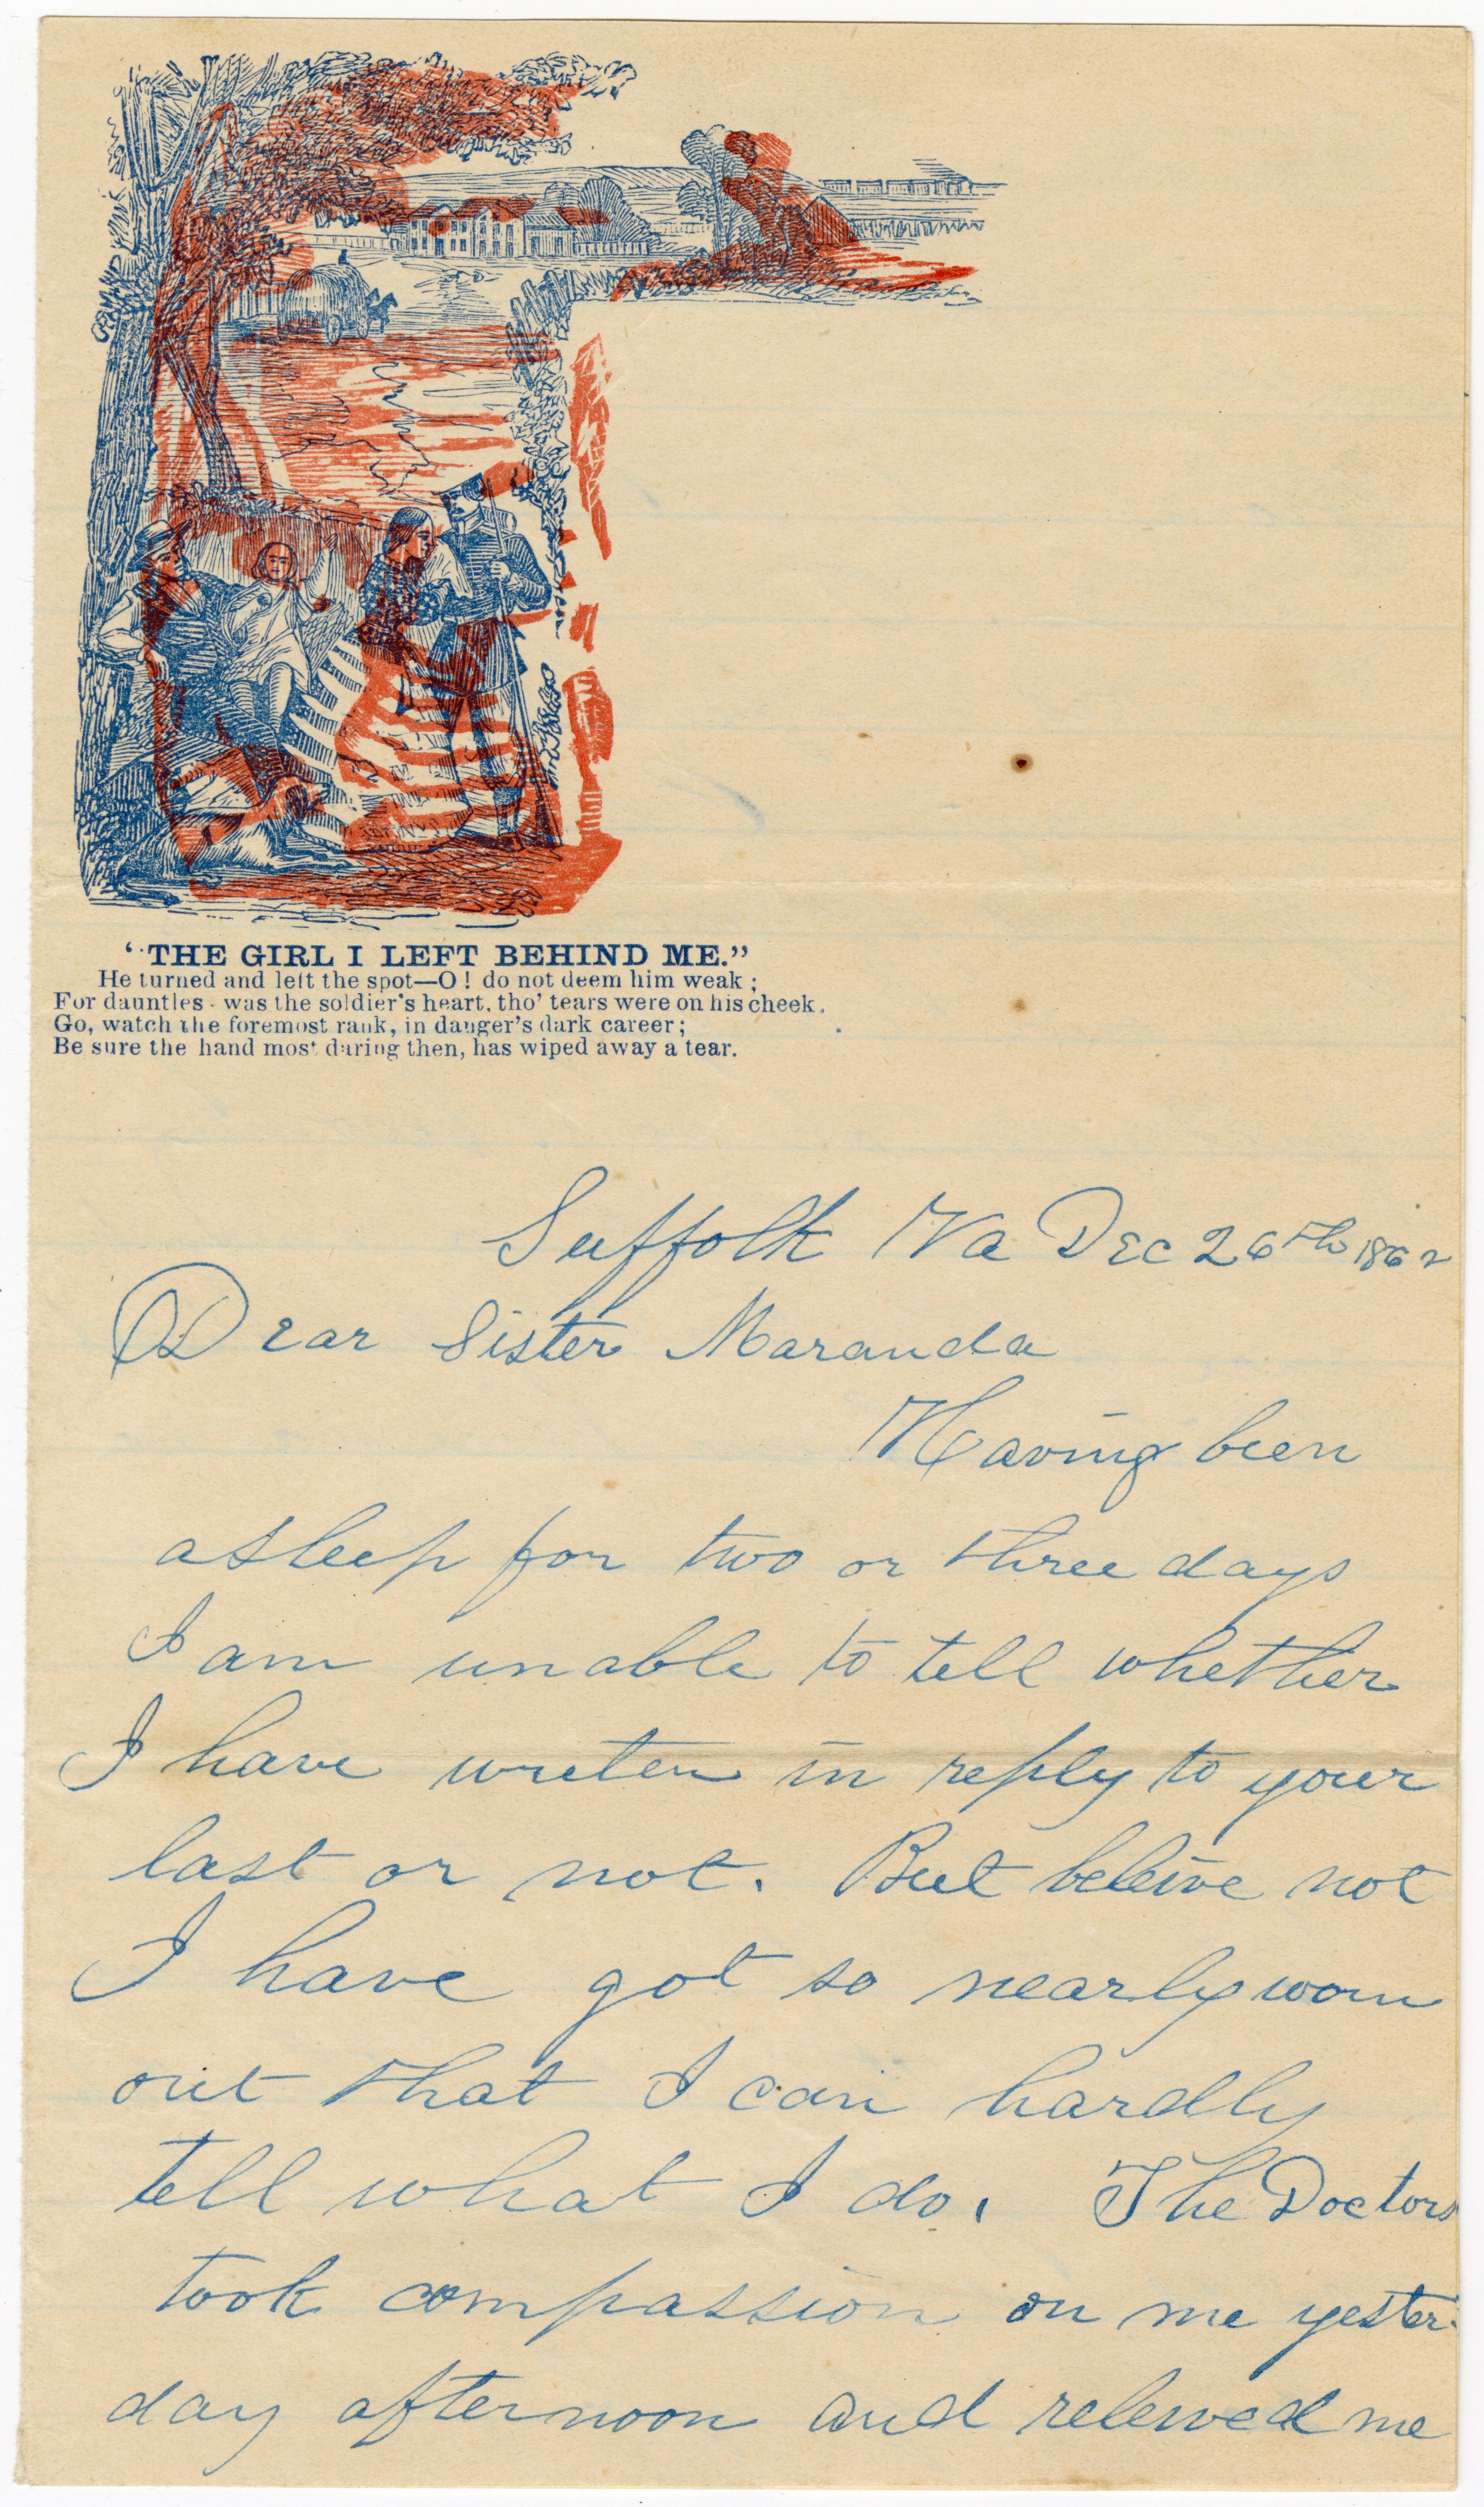 "THE GIRL I LEFT BEHIND ME."
He turned and left the spot—O! do not deem him weak;
For dauntles was the soldier's heart, tho' tears were on his cheek.
Go, watch the foremost rank, in danger's dark career;
Be sure the hand most daring then, has wiped away a tear.
Suffolk Va Dec 26th 1862
Dear Sister Maranda
Having been
asleep for two or three days
I am unable to tell whether
I have writen in reply to your
last or not. But beleive not
I have got so nearly worn
out that I can hardly
tell what I do. The Doctors
took compassion on me yester-
day afternoon and releived me